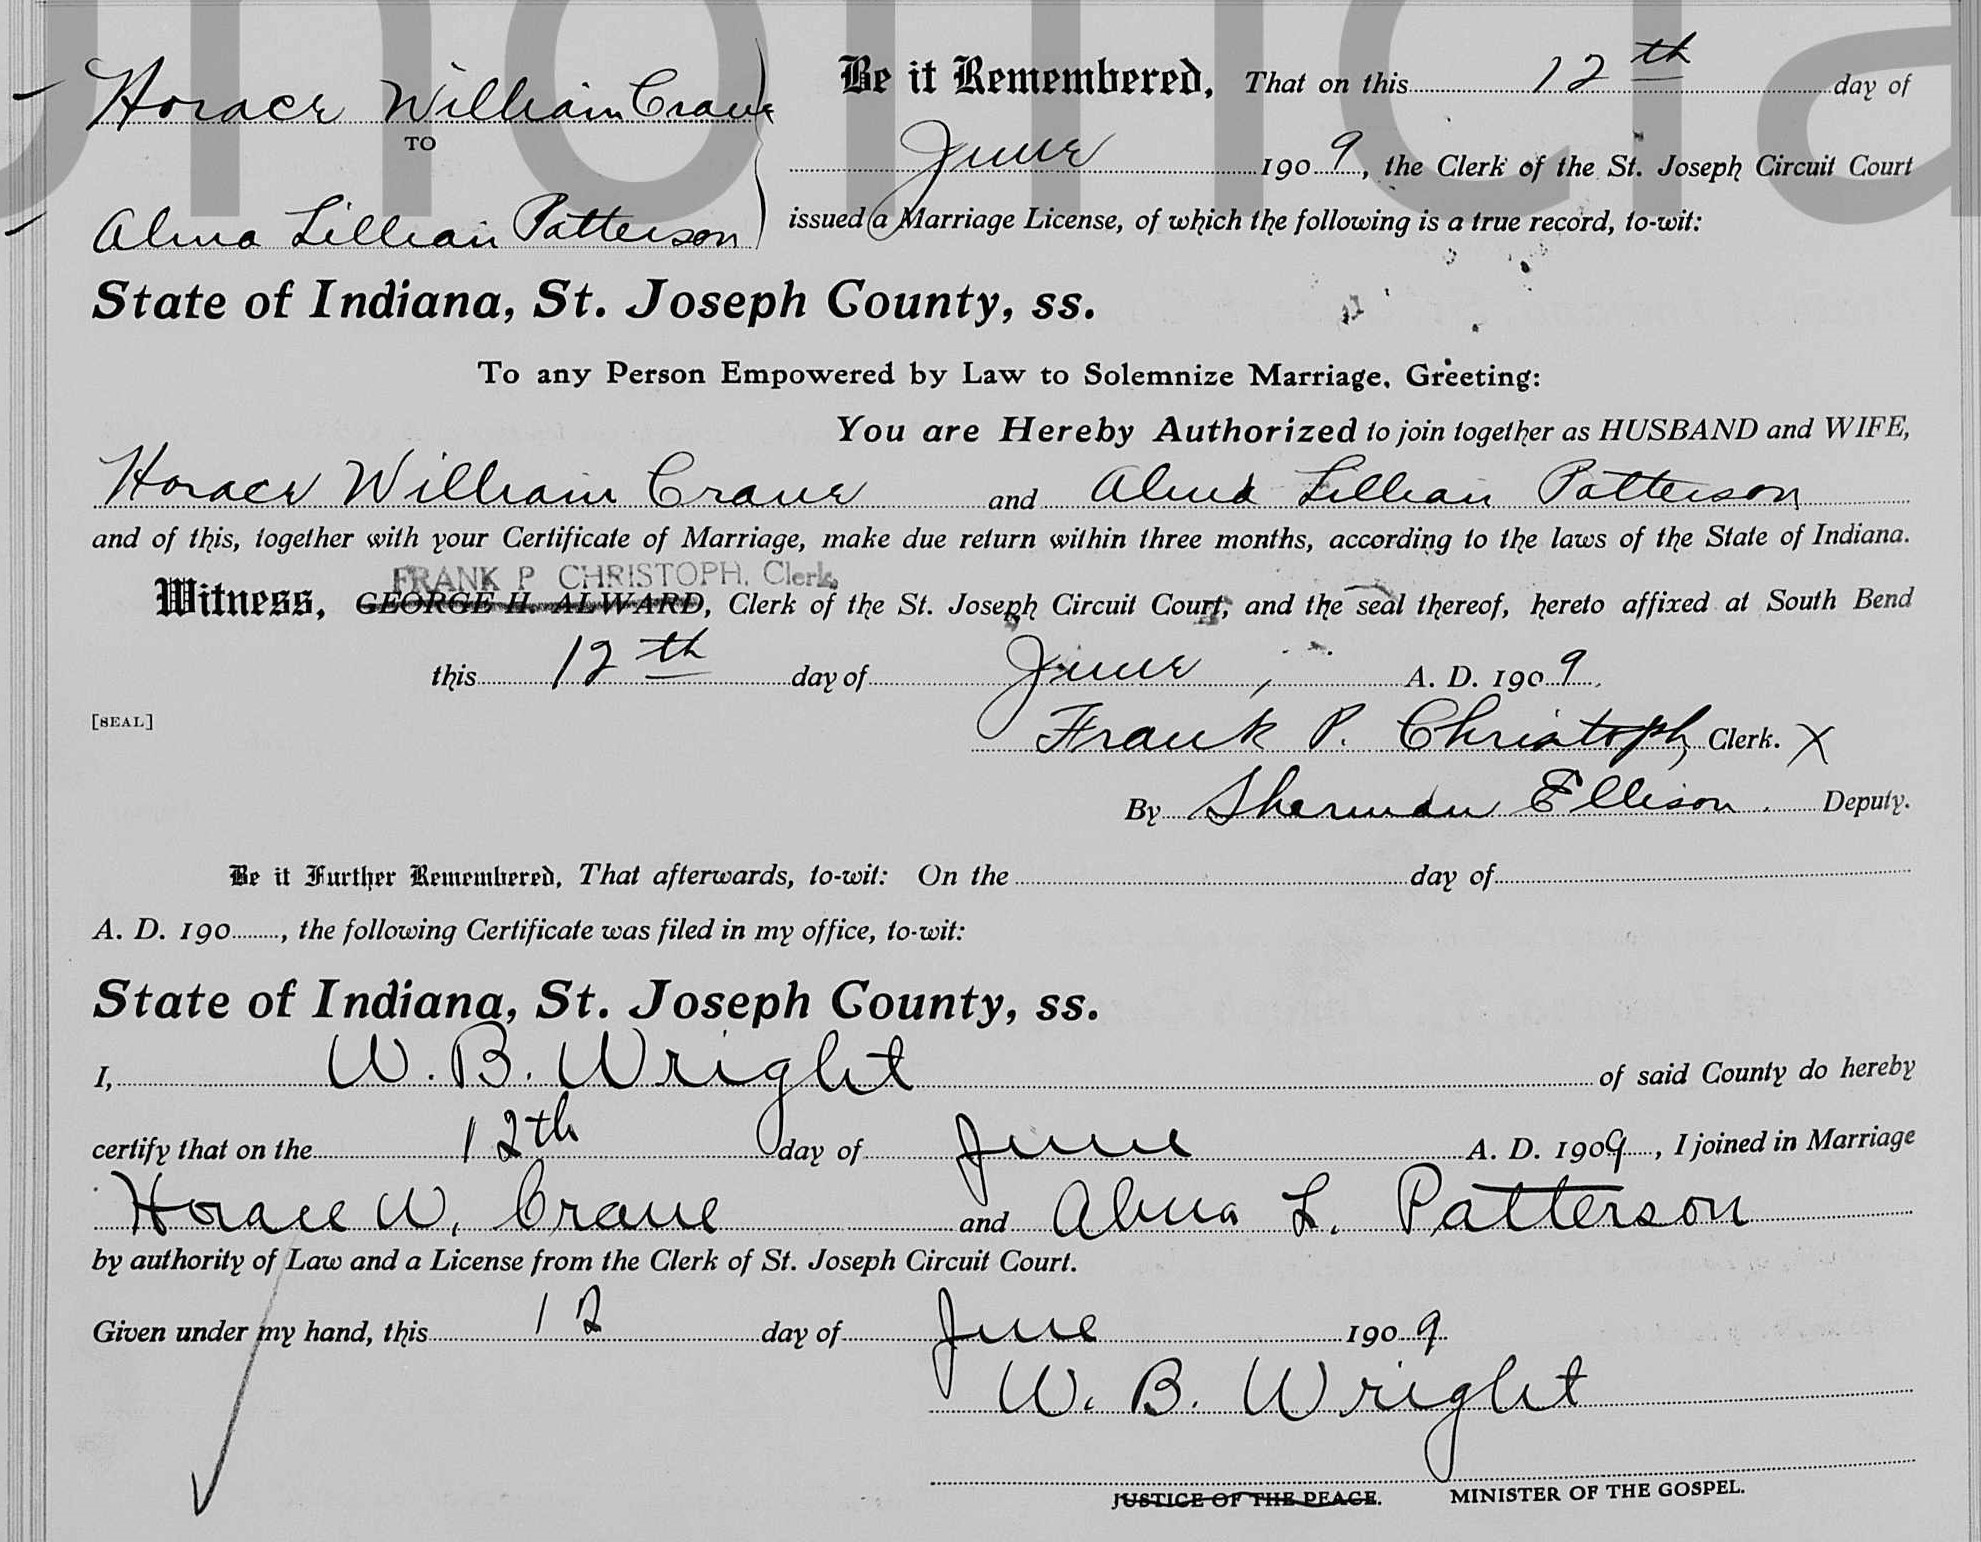 Horace William Crane
TO
Alma Lillian Patterson
Be it Remembered, That on this 12th day of
June 1909, the Clerk of the St. Joseph Circuit Court
issued a Marriage License, of which the following is a true record, to-wit:
State of Indiana, St. Joseph County, ss.
To any Person Empowered by Law to Solemnize Marriage, Greeting:
You are Hereby Authorized to join together as HUSBAND and WIFE,
Horace William Crane and Alma Lillian Patterson
and of this, together with your Certificate of Marriage, make due return within three months, according to the laws of the State of Indiana.
FRANK P CHRISTOPH, Clerk,
Witness, GEORGE H. ALWARD, Clerk of the St. Joseph Circuit Court, and the seal thereof, hereto affixed at South Bend
this 12th day of June, A. D. 1909.
[SEAL]
Frank P. Christoph, Clerk. X
By Sherman Ellison. Deputy.
Be it Further Remembered, That afterwards, to-wit: On the day of
A. D. 190 , the following Certificate was filed in my office, to-wit:
State of Indiana, St. Joseph County, ss.
I, W. B. Wright of said County do hereby
certify that on the 12th day of June A. D. 1909, I joined in Marriage
Horace W. Crane and Alma L. Patterson
by authority of Law and a License from the Clerk of St. Joseph Circuit Court.
Given under my hand, this 12 day of June 1909.
W. B. Wright
JUSTICE OF THE PEACE. MINISTER OF THE GOSPEL.